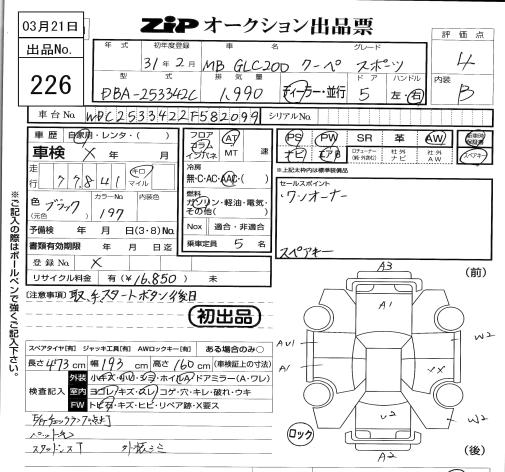 03月21日
ZIP オークション出品票
出品No.
226
年式 初年度登録 車名 グレード
31年2月 MB GLC200 クーペ スポーツ
型式 排気量 ドア ハンドル
DBA-253342C 1,990 ディーラー・並行 5 左・右
評価点
4
内装
B
車台No. WDC2533422F582099 シリアルNo.
車歴 自家用・レンタ・( )
車検 X 年 月
走行 77,841 キロ マイル
色(元色) ブラック カラーNo. 197 内装色
予備検 年 月 日(3・8)No.
書類有効期限 年 月 日迄
登録No. X
リサイクル料金 有(¥16,850) 未
フロア コラム インパネ AT MT 速
冷房 無・C・AC・AAC・( )
燃料 ガソリン・軽油・電気・その他( )
Nox 適合・非適合
乗車定員 5 名
PS PW SR 革 AW
ナビ エアB 社外ナビ 社外AW スペアキー
※上記太枠内は標準装備品
セールスポイント
ワンオーナー
スペアキー
【注意事項】取、手、スタートボタン 後日
初出品
スペアタイヤ[有] ジャッキ工具[有] AWロックキー[有] ある場合のみ○
長さ 473cm 幅 193cm 高さ 160cm (車検証上の寸法)
検査記入
外装 小キズ・小U・シミ・ホイル(A)・ドアミラー(A・ワレ)
室内 ヨゴレ・キズ・スレ・コゲ・穴・キレ・破れ・ウキ
FW トビ石・キズ・ヒビ・リペア跡・X要ス
外張シミ
※ご記入の際はボールペンで強くご記入下さい。
(前)
A3
A1
AU1
A1
W2
XX
U2
W2
ロック
A2
(後)